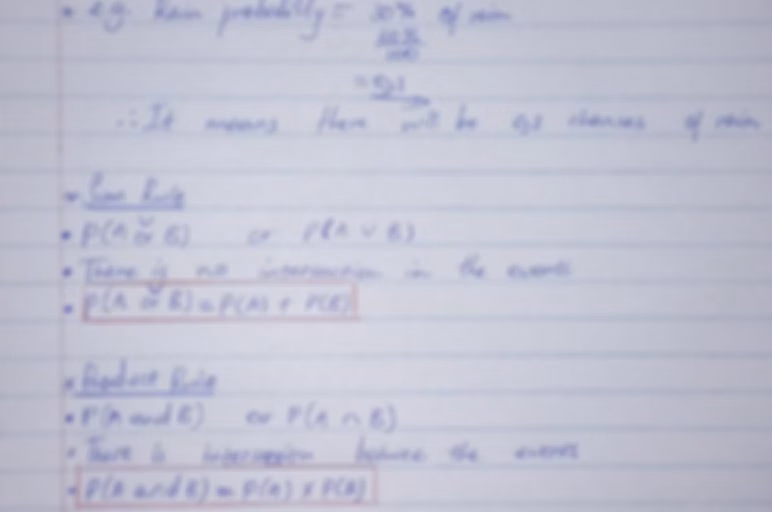 • e.g. Rain probability = 30% of rain
30%
100
= 0,3
∴ It means there will be 0,3 chances of rain
• Sum Rule
• P(A or B) or P(A ∪ B)
• There is no intersection in the events
• P(A or B) = P(A) + P(B)
• Product Rule
• P(A and B) or P(A ∩ B)
• There is intersection between the events
• P(A and B) = P(A) x P(B)